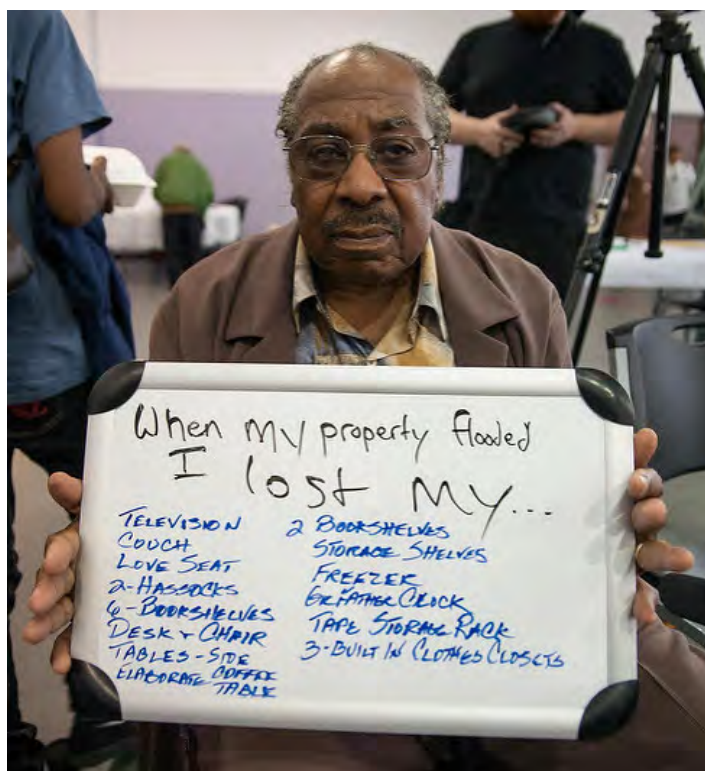 When my property flooded
I lost my...
TELEVISION
COUCH
LOVE SEAT
2-HASSOCKS
6-BOOKSHELVES
DESK & CHAIR
TABLES-SIDE
ELABORATE COFFEE
TABLE
2 BOOKSHELVES
STORAGE SHELVES
FREEZER
GRFATHER CLOCK
TAPE STORAGE RACK
3-BUILT IN CLOTHES CLOSETS